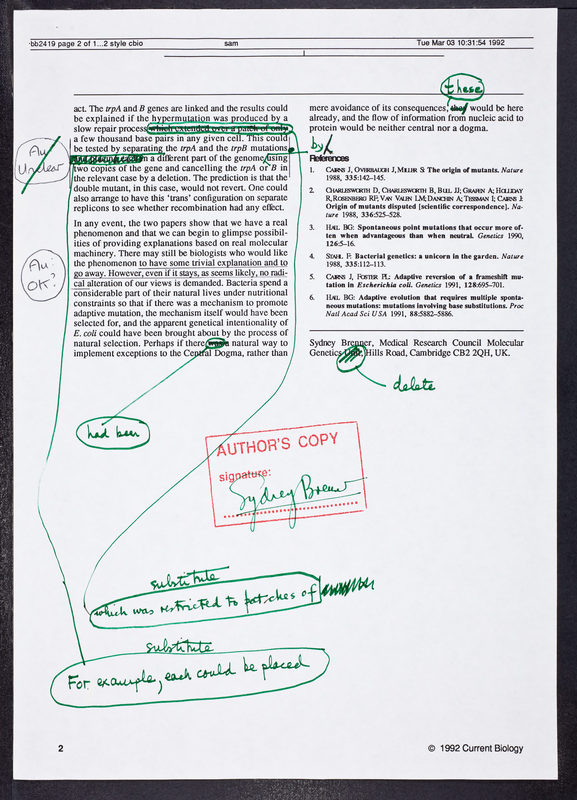 bb2419 page 2 of 1...2 style cbio sam Tue Mar 03 10:31:54 1992
act. The trpA and B genes are linked and the results could
be explained if the hypermutation was produced by a
slow repair process which extended over a patch of only
a few thousand base pairs in any given cell. This could
be tested by separating the trpA and the trpB mutations
in a different part of the genome/using
two copies of the gene and cancelling the trpA or B in
the relevant case by a deletion. The prediction is that the
double mutant, in this case, would not revert. One could
also arrange to have this 'trans' configuration on separate
replicons to see whether recombination had any effect.
In any event, the two papers show that we have a real
phenomenon and that we can begin to glimpse possibil-
ities of providing explanations based on real molecular
machinery. There may still be biologists who would like
the phenomenon to have some trivial explanation and to
go away. However, even if it stays, as seems likely, no radi-
cal alteration of our views is demanded. Bacteria spend a
considerable part of their natural lives under nutritional
constraints so that if there was a mechanism to promote
adaptive mutation, the mechanism itself would have been
selected for, and the apparent genetic intentionality of
E. coli could have been brought about by the process of
natural selection. Perhaps if there was a natural way to
implement exceptions to the Central Dogma, rather than
Au:
Unclear
Au:
OK?
these
mere avoidance of its consequences, they would be here
already, and the flow of information from nucleic acid to
protein would be neither central nor a dogma.
by
References
1. CAIRNS J, OVERBAUGH J, MILLER S: The origin of mutants. Nature
1988, 335:142–145.
2. CHARLESWORTH D, CHARLESWORTH B, BULL JJ; GRAFEN A; HOLLIDAY
R, ROSENBERG RF; VAN VALEN LM; DANCHIN A; TESSMAN I; CAIRNS J:
Origin of mutants disputed [scientific correspondence]. Na-
ture 1988, 336:525–528.
3. HALL BG: Spontaneous point mutations that occur more of-
ten when advantageous than when neutral. Genetics 1990,
126:5–16.
4. STAHL F: Bacterial genetics: a unicorn in the garden. Nature
1988, 335:112–113.
5. CAIRNS J, FOSTER PL: Adaptive reversion of a frameshift mu-
tation in Escherichia coli. Genetics 1991, 128:695–701.
6. HALL BG: Adaptive evolution that requires multiple sponta-
neous mutations: mutations involving base substitutions. Proc
Natl Acad Sci U S A 1991, 88:5882–5886.
Sydney Brenner, Medical Research Council Molecular
Genetics Unit, Hills Road, Cambridge CB2 2QH, UK.
delete
had been
AUTHOR'S COPY
signature:
Sydney Brenner
substitute
which was restricted to patches of
substitute
For example, each could be placed
2 © 1992 Current Biology